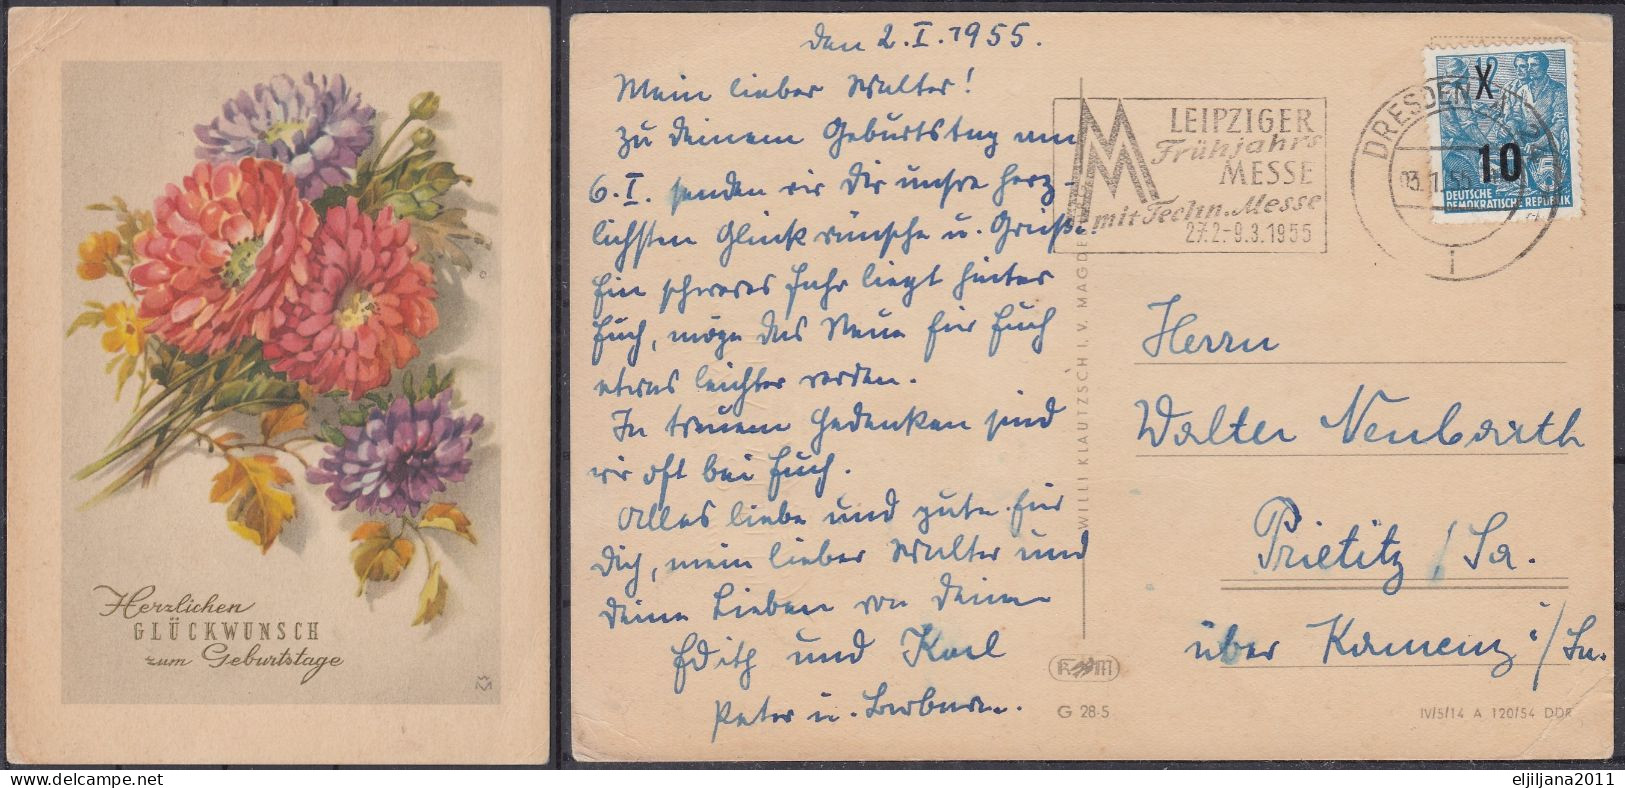 Herzlichen
GLÜCKWUNSCH
zum Geburtstage
den 2.I.1955.
Mein lieber Walter!
Zu deinem Geburtstag am
6.I. senden wir Dir unsre herz-
lichsten Glückwünsche u. Grüße!
Ein schweres Jahr liegt hinter
Euch, möge das Neue für Euch
etwas leichter werden.
In treuem Gedenken sind
wir oft bei Euch.
Alles liebe und gute für
Dich, mein lieber Walter und
deine Lieben von Deinen
Edith und Karl
Peter u. Barbara.
LEIPZIGER
Frühjahrs
MESSE
mit Techn. Messe
27.2.-9.3.1955
DRESDEN
12
X
10
DEUTSCHE
DEMOKRATISCHE REPUBLIK
WILLI KLAUTZSCH I. V. MAGDE
Herrn
Walter Neubarth
Prietitz / Sa.
über Kamenz i/Sa.
G 28-5
IV/5/14 A 120/54 DDR
eljiljana2011